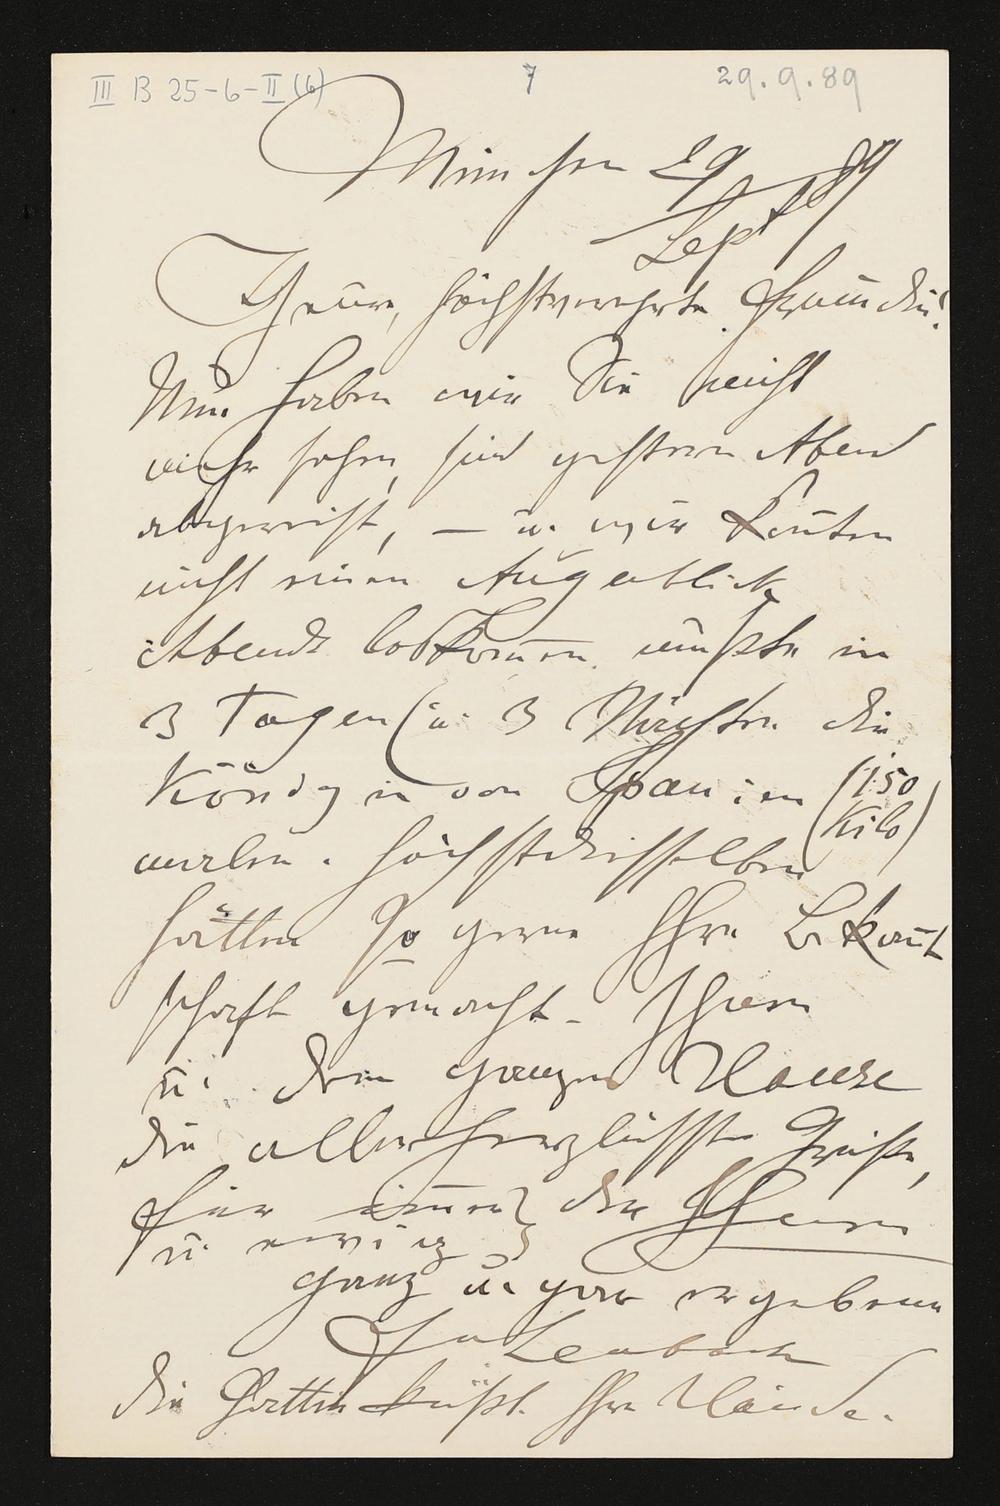 III B 25-6-II (6) 7 29.9.89
München 29 89
Sept
Theure, höchstverehrte Freundin!
Nun haben wir Sie nicht
mehr sehen, sind gestern Abend
abgereist, – u. wir konnten
nicht einen Augenblick
Abends loskommen. mußte in
3 Tagen (u. 3 Nächten die
Königin von Spanien (150
Kilo)
malen. Höchstdieselben
hätten so gerne Ihre Bekannt
schaft gemacht – Ihnen
u. dem ganzen Hause
die allerherzlichsten Grüße,
für immer } der Ihnen
u. ewig }
ganz u. gar ergebene
Lenbach
die Gattin küßt Ihre Hände.